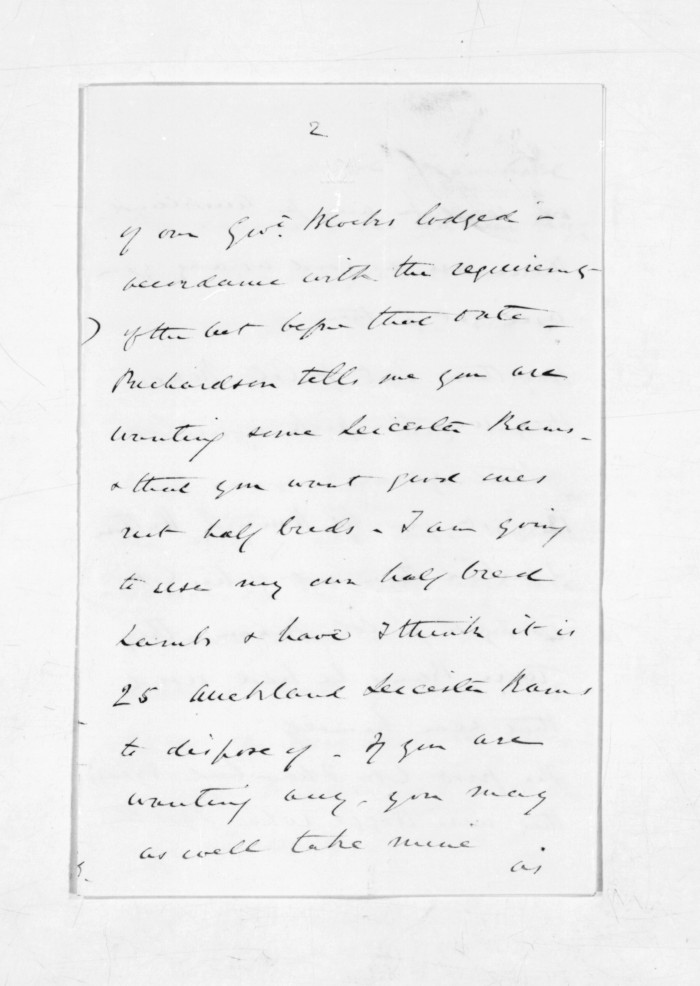 2
of our Govt. Blocks lodged in
accordance with the requirements
of the act before that date -
Richardson tells me you are
wanting some Leicester Rams -
& that you want good ones
not half breds - I am going
to use my own half bred
Lambs & have I think it is
25 Auckland Leicester Rams
to dispose of - If you are
wanting any, you may
as well take mine
as